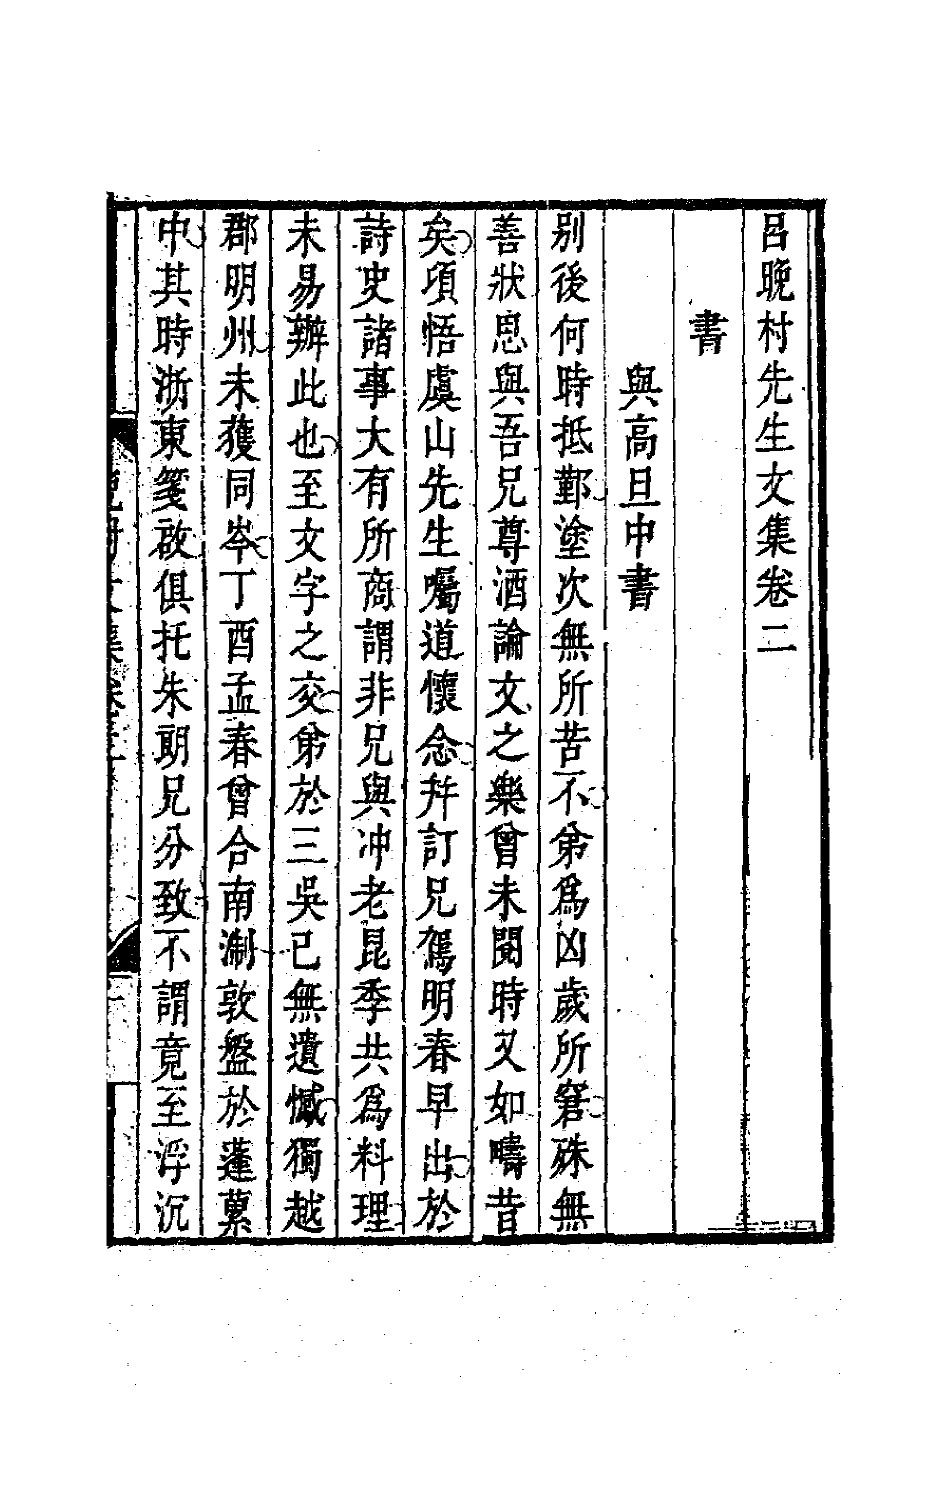 呂晚村先生文集卷二
書
與高旦中書
别後何時抵鄞塗次無所苦不第爲凶歲所窘殊無
善狀思與吾兄尊酒論文之樂曾未閱時又如疇昔
矣項悟虞山先生囑道懷念幷訂兄駕明春早出於
詩史諸事大有所商謂非兄與冲老昆季共爲料理
未易辦此也至文字之交弟於三吳已無遺憾獨越
郡明州未獲同岑丁酉孟春曾合南淛敦盤於蓬蔂
中其時浙東箋啟俱托朱朗兄分致不謂竟至浮沉
晚村文集卷二